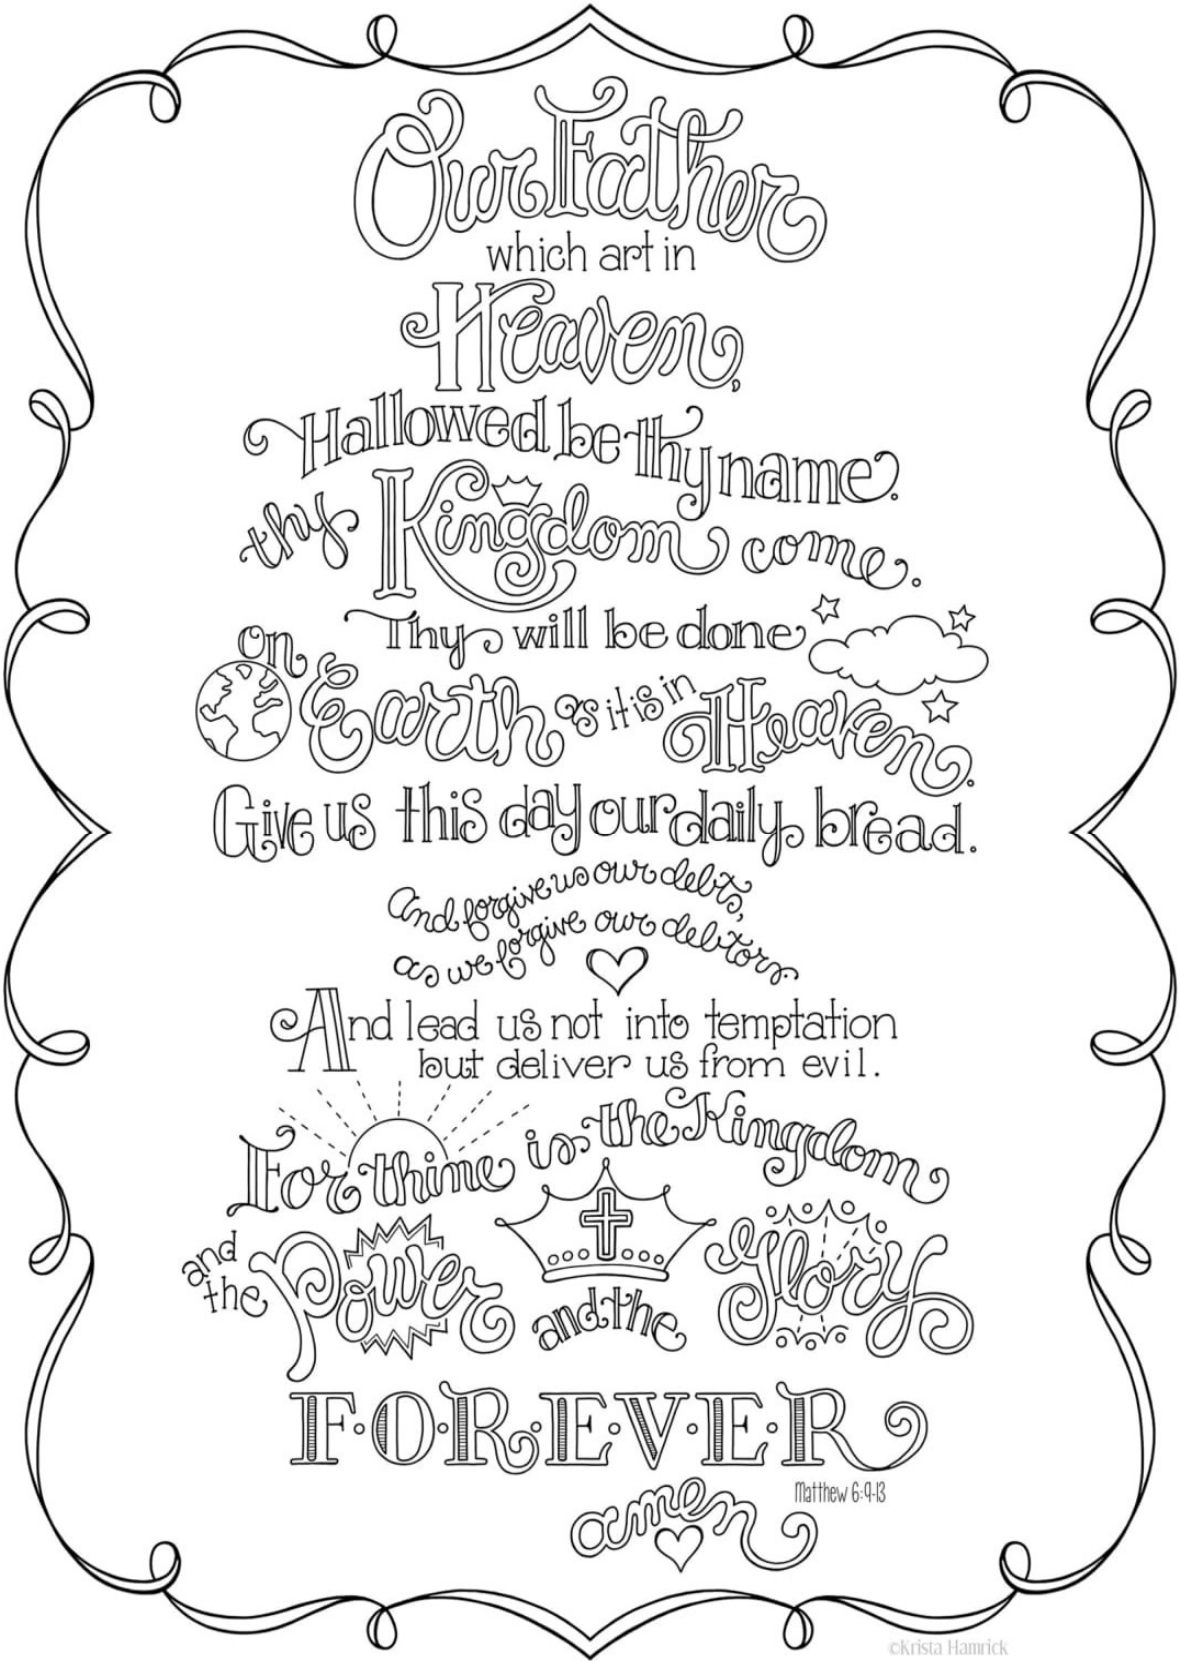 Our Father
which art in
Heaven,
Hallowed be thy name.
thy Kingdom come.
Thy will be done
on Earth as it is in Heaven.
Give us this day our daily bread.
And forgive us our debts,
as we forgive our debtors.
And lead us not into temptation
but deliver us from evil.
For thine is the Kingdom
and the Power and the Glory
F·O·R·E·V·E·R
amen
Matthew 6:9-13
©Krista Hamrick